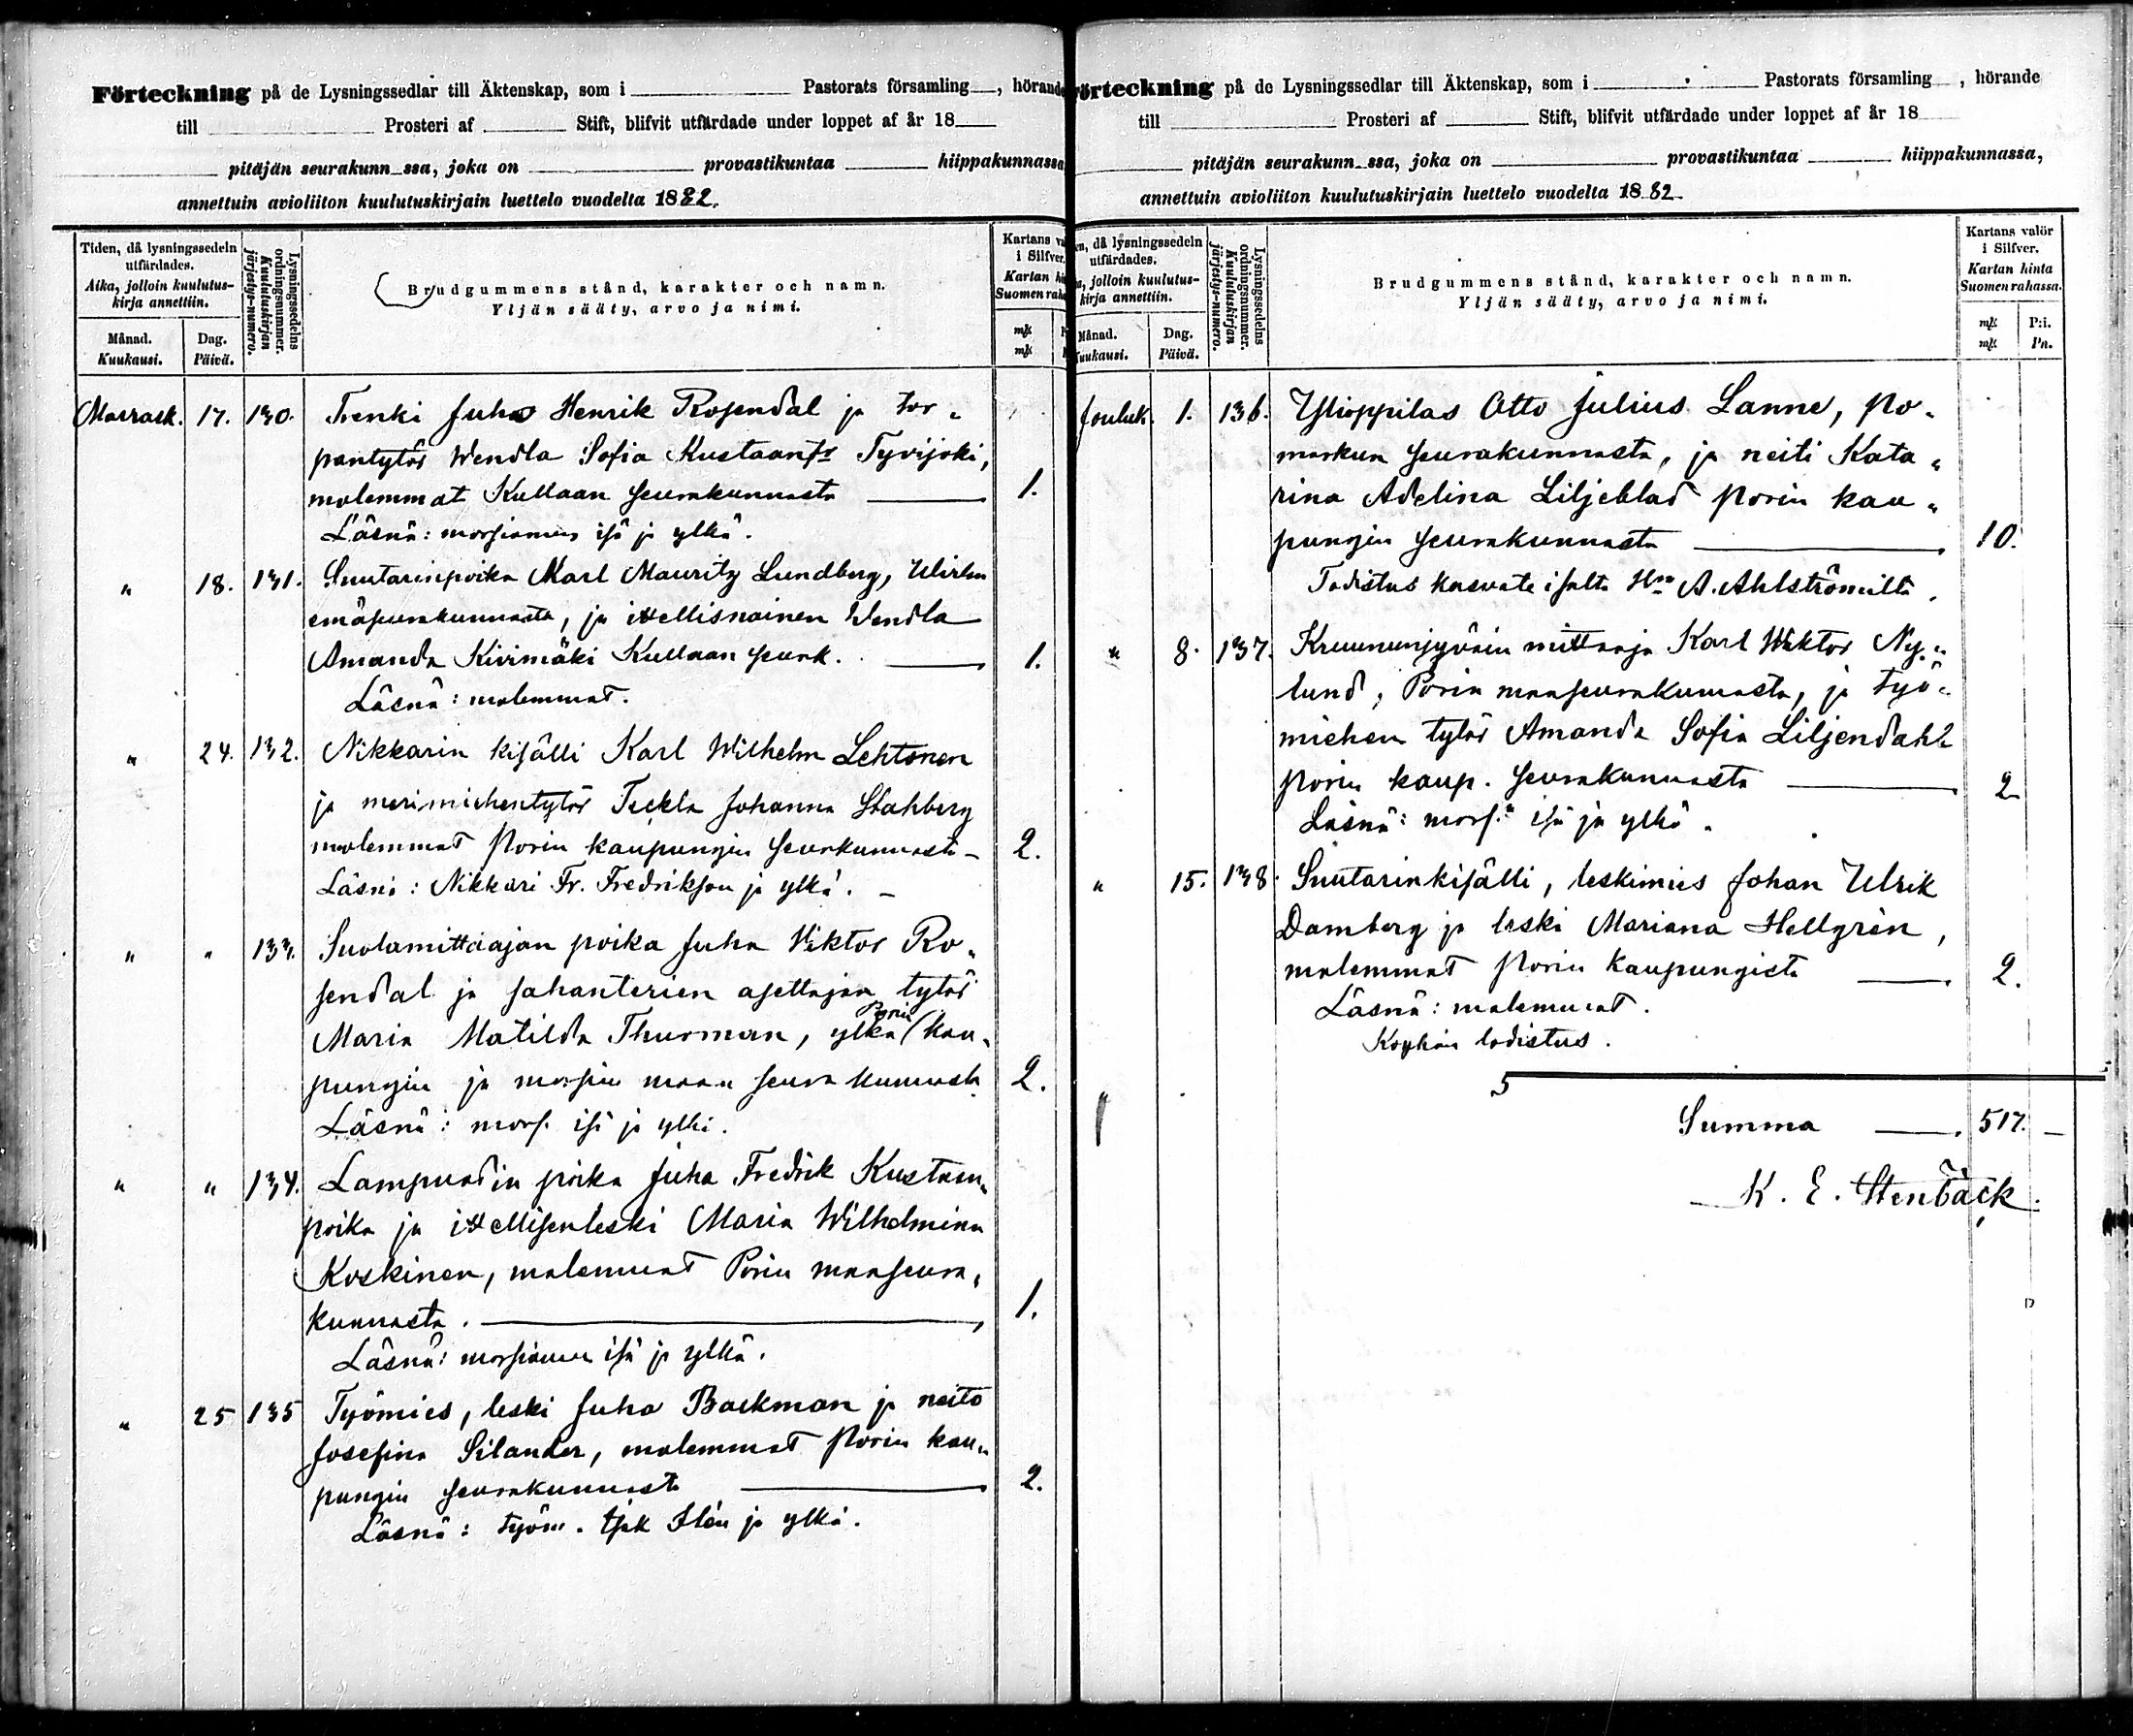 Förteckning på de Lysningssedlar till Äktenskap, som i Pastorats församling , hörande
till Prosteri af Stift, blifvit utfärdade under loppet af år 18
pitäjän seurakunn ssa, joka on provastikuntaa hiippakunnassa
annettuin avioliiton kuulutuskirjain luettelo vuodelta 1882.
Tiden, då lysningssedeln
utfärdades.
Aika, jolloin kuulutus-
kirja annettiin.
Månad.
Kuukausi.
Dag.
Päivä.
Lysningssedelns
ordningsnummer.
Kuulutuskirjan
järjestys-numero.
Brudgummens stånd, karakter och namn.
Yljän sääty, arvo ja nimi.
Kartans
i Silfver.
Kartan
Suomen
mk
mk
Marrask. 17. 130. Trenki Juha Henrik Rosendal ja tor-
pantytär Wendla Sofia Kustaantr Tyvijoki,
molemmat Kullaan seurakunnasta 1.
Läsnä: morsiamen isä ja ylkä.
" 18. 131. Suutarinpoika Karl Mauritz Lundberg, Ulvilan
emäseurakunnasta, ja itsellisnainen Wendla
Amanda Kivimäki Kullaan seurk. 1.
Läsnä: molemmat.
" 24. 132. Nikkarin kisälli Karl Wilhelm Lehtonen
ja merimiehentytär Teckla Johanna Stahberg
molemmat Porin kaupungin seurkunnasta 2.
Läsnä: Nikkari Fr. Fredrikson ja ylkä.
" " 133. Suolamittaajan poika Juha Viktor Ro-
sendal ja sahanterien asettajan tytär
Maria Matilda Thurman, ylkä Porin kau-
pungin ja morsian maan seurakunnasta 2.
Läsnä: mors. isä ja ylkä.
" " 134. Lampuodin poika Juha Fredrik Kustaan-
poika ja itsellisenleski Maria Wilhelmina
Koskinen, molemmat Porin maaseura-
kunnasta. 1.
Läsnä: morsiamen isä ja ylkä.
" 25 135 Työmies, leski Juha Backman ja neito
Josefina Silander, molemmat Porin kau-
pungin seurakunnasta 2.
Läsnä: työm. ja ylkä.
Förteckning på de Lysningssedlar till Äktenskap, som i Pastorats församling , hörande
till Prosteri af Stift, blifvit utfärdade under loppet af år 18
pitäjän seurakunn ssa, joka on provastikuntaa hiippakunnassa,
annettuin avioliiton kuulutuskirjain luettelo vuodelta 1882.
då lysningssedeln
utfärdades.
jolloin kuulutus-
kirja annettiin.
Månad.
Kuukausi.
Dag.
Päivä.
Lysningssedelns
ordningsnummer.
Kuulutuskirjan
järjestys-numero.
Brudgummens stånd, karakter och namn.
Yljän sääty, arvo ja nimi.
Kartans valör
i Silfver.
Kartan hinta
Suomen rahassa.
mk P:i.
mk Pn.
Jouluk. 1. 136. Ylioppilas Otto Julius Lanne, Po-
markun seurakunnasta, ja neiti Kata-
rina Adelina Liljeblad Porin kau-
pungin seurakunnasta 10.
Todistus kasvate isältä Hra A. Ahlströmiltä.
" 8. 137. Kruununjyväin mittaaja Karl Wiktor Ny-
lund, Porin maaseurakunnasta, ja työ-
miehen tytär Amanda Sofia Liljendahl
Porin kaup. seurakunnasta 2
Läsnä: mors. isä ja ylkä.
" 15. 138. Suutarinkisälli, leskimies Johan Ulrik
Damberg ja leski Mariana Hellgrén,
molemmat Porin kaupungista 2.
Läsnä: molemmat.
Köyhäin todistus.
Summa 517.
K. E. Stenbäck.